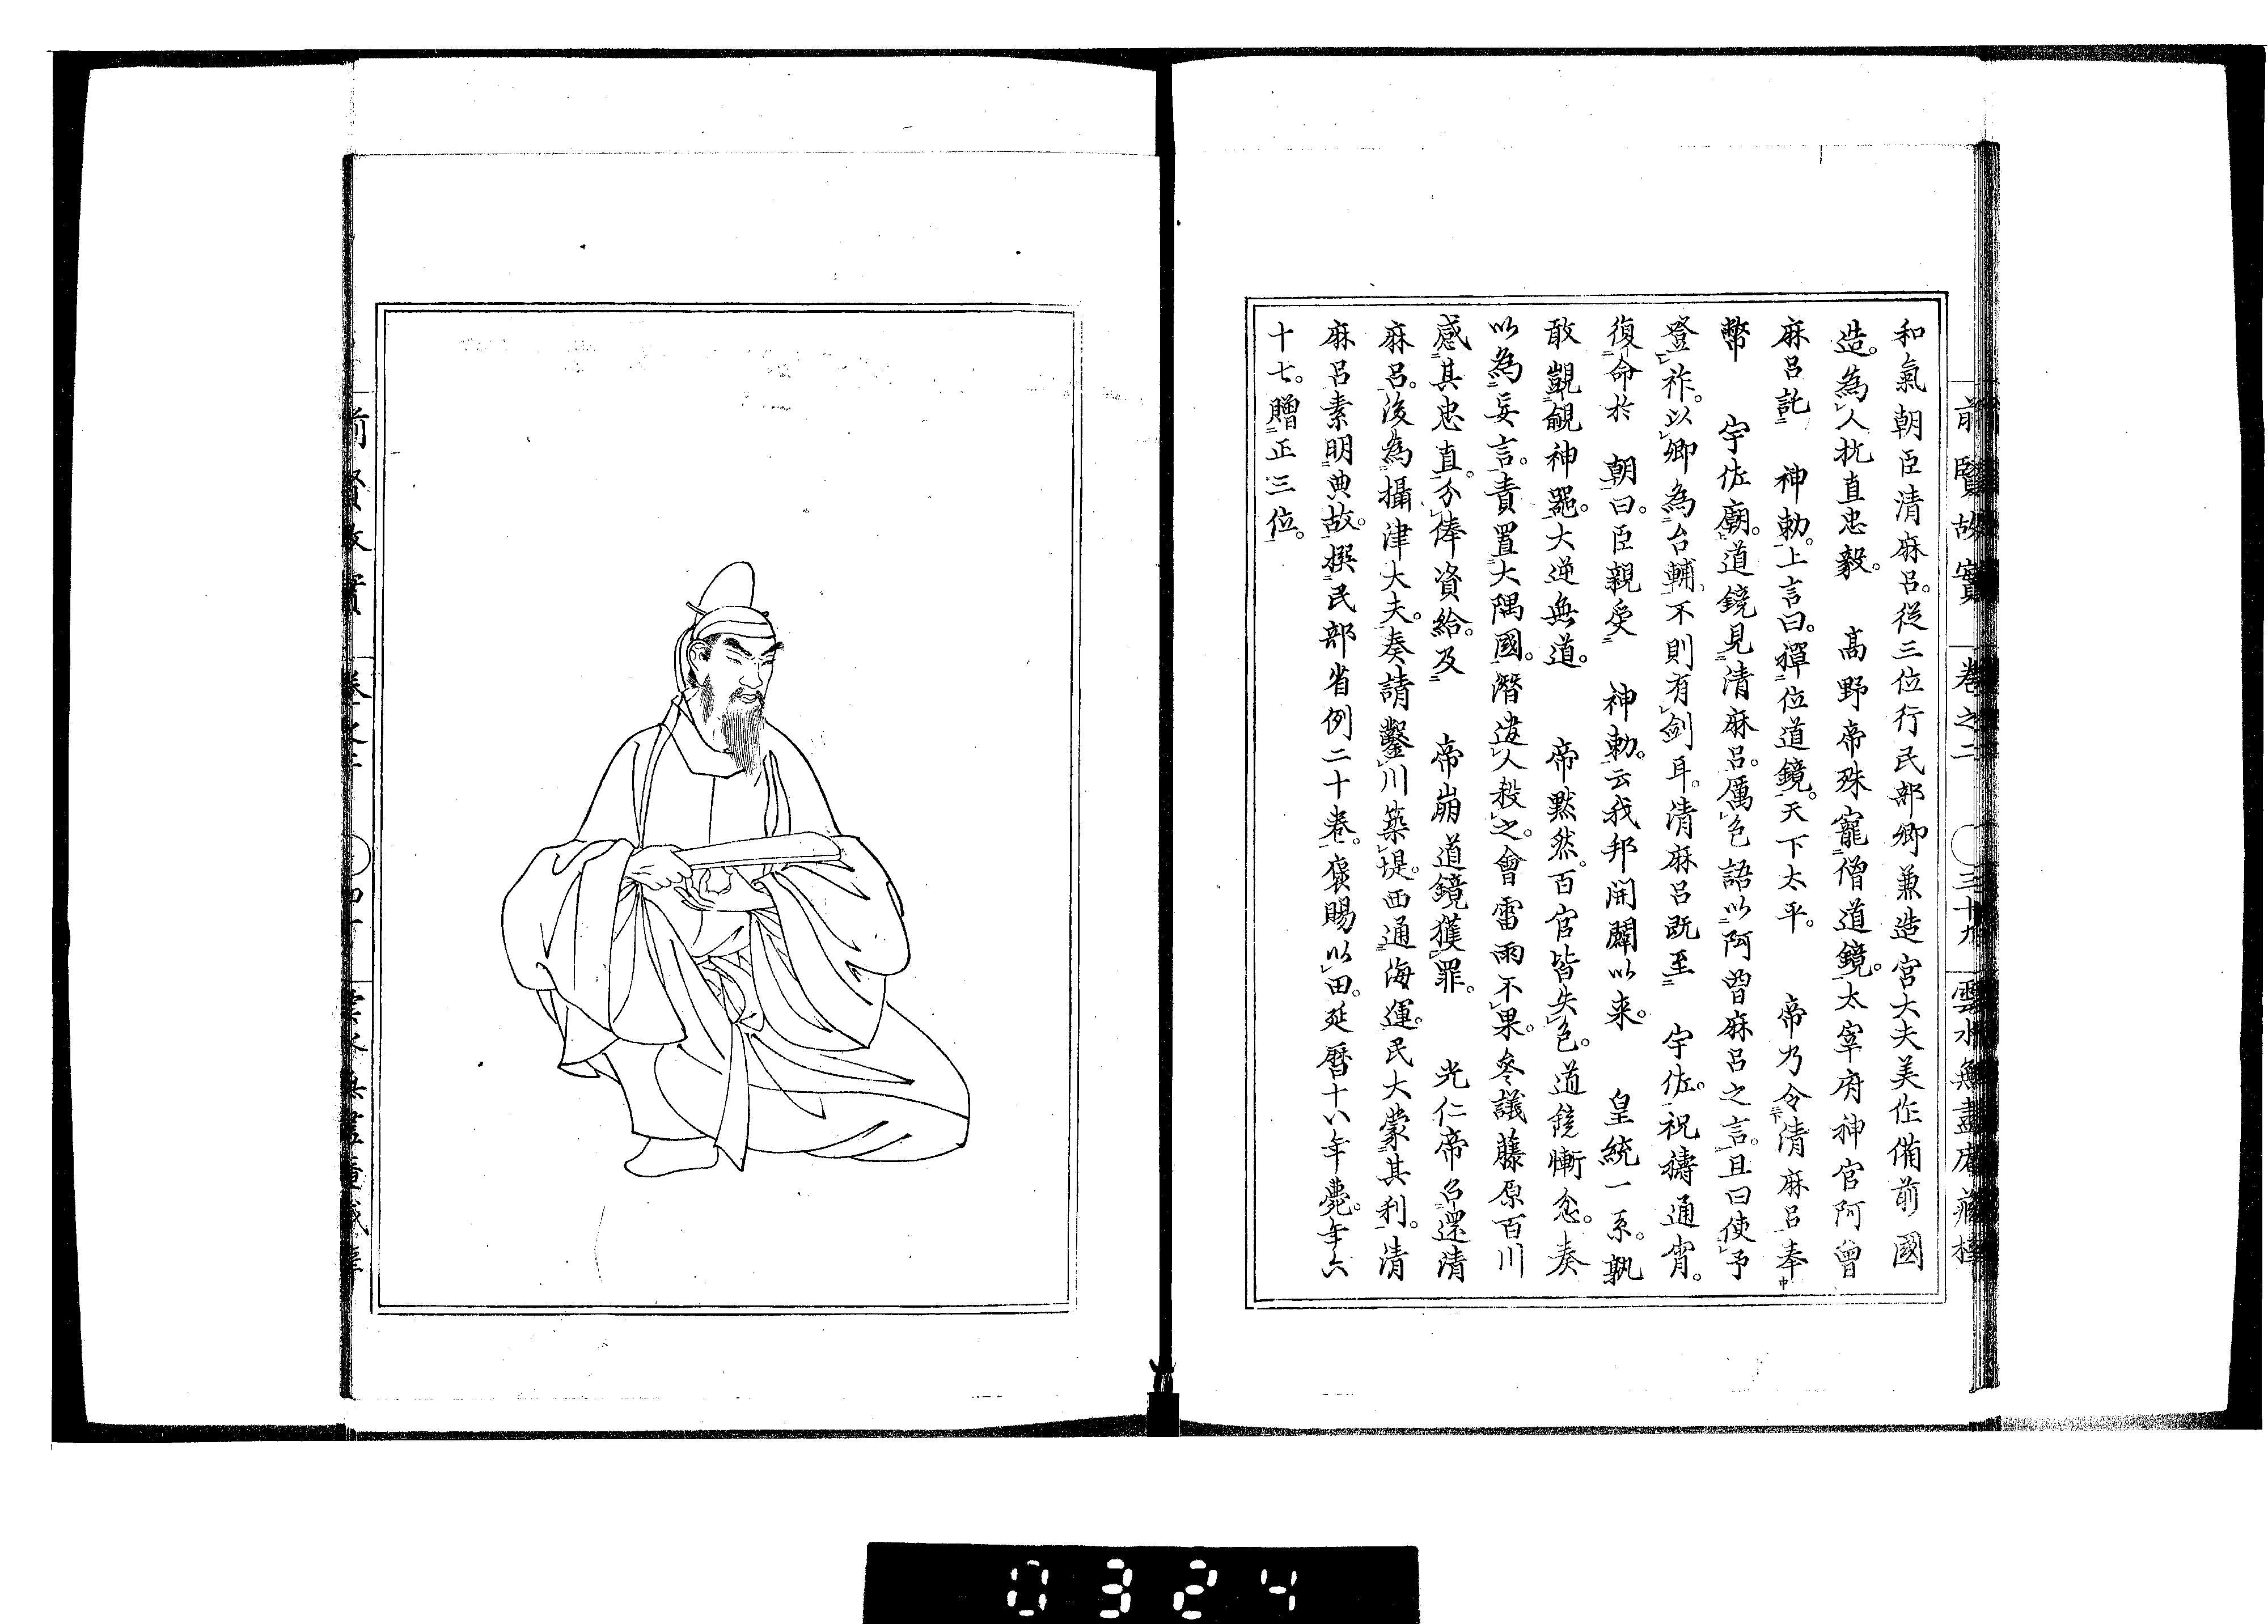 前賢故實 卷之二 三十九 雲水無盡庵藏
和氣朝臣清麻呂。從三位行民部卿兼造宮大夫美作備前國
造。為人抗直忠毅。 高野帝殊寵僧道鏡。太宰府神官阿曾
麻呂託 神勅。上言曰。禪位道鏡。天下太平。 帝乃令清麻呂奉
幣 宇佐廟。道鏡見清麻呂。厲色語以阿曾麻呂之言。且曰使予
登祚。以卿為台輔。不則有劍耳。清麻呂既至 宇佐。祝禱通宵。
復命於 朝曰。臣親受 神勅。云我邦開闢以来。 皇統一系。孰
敢覬覦神器。大逆無道。 帝黙然。百官皆失色。道鏡慚忿。奏
以為妄言。責置大隅國。潛遣人殺之。會雷雨不果。參議藤原百川
感其忠直。分俸資給。及 帝崩道鏡獲罪。 光仁帝召還清
麻呂。後為攝津大夫。奏請鑿川築堤。西通海運。民大蒙其利。清
麻呂素明典故。撰民部省例二十卷。褒賜以田。延曆十八年薨。年六
十七。贈正三位。
前賢故實
0324